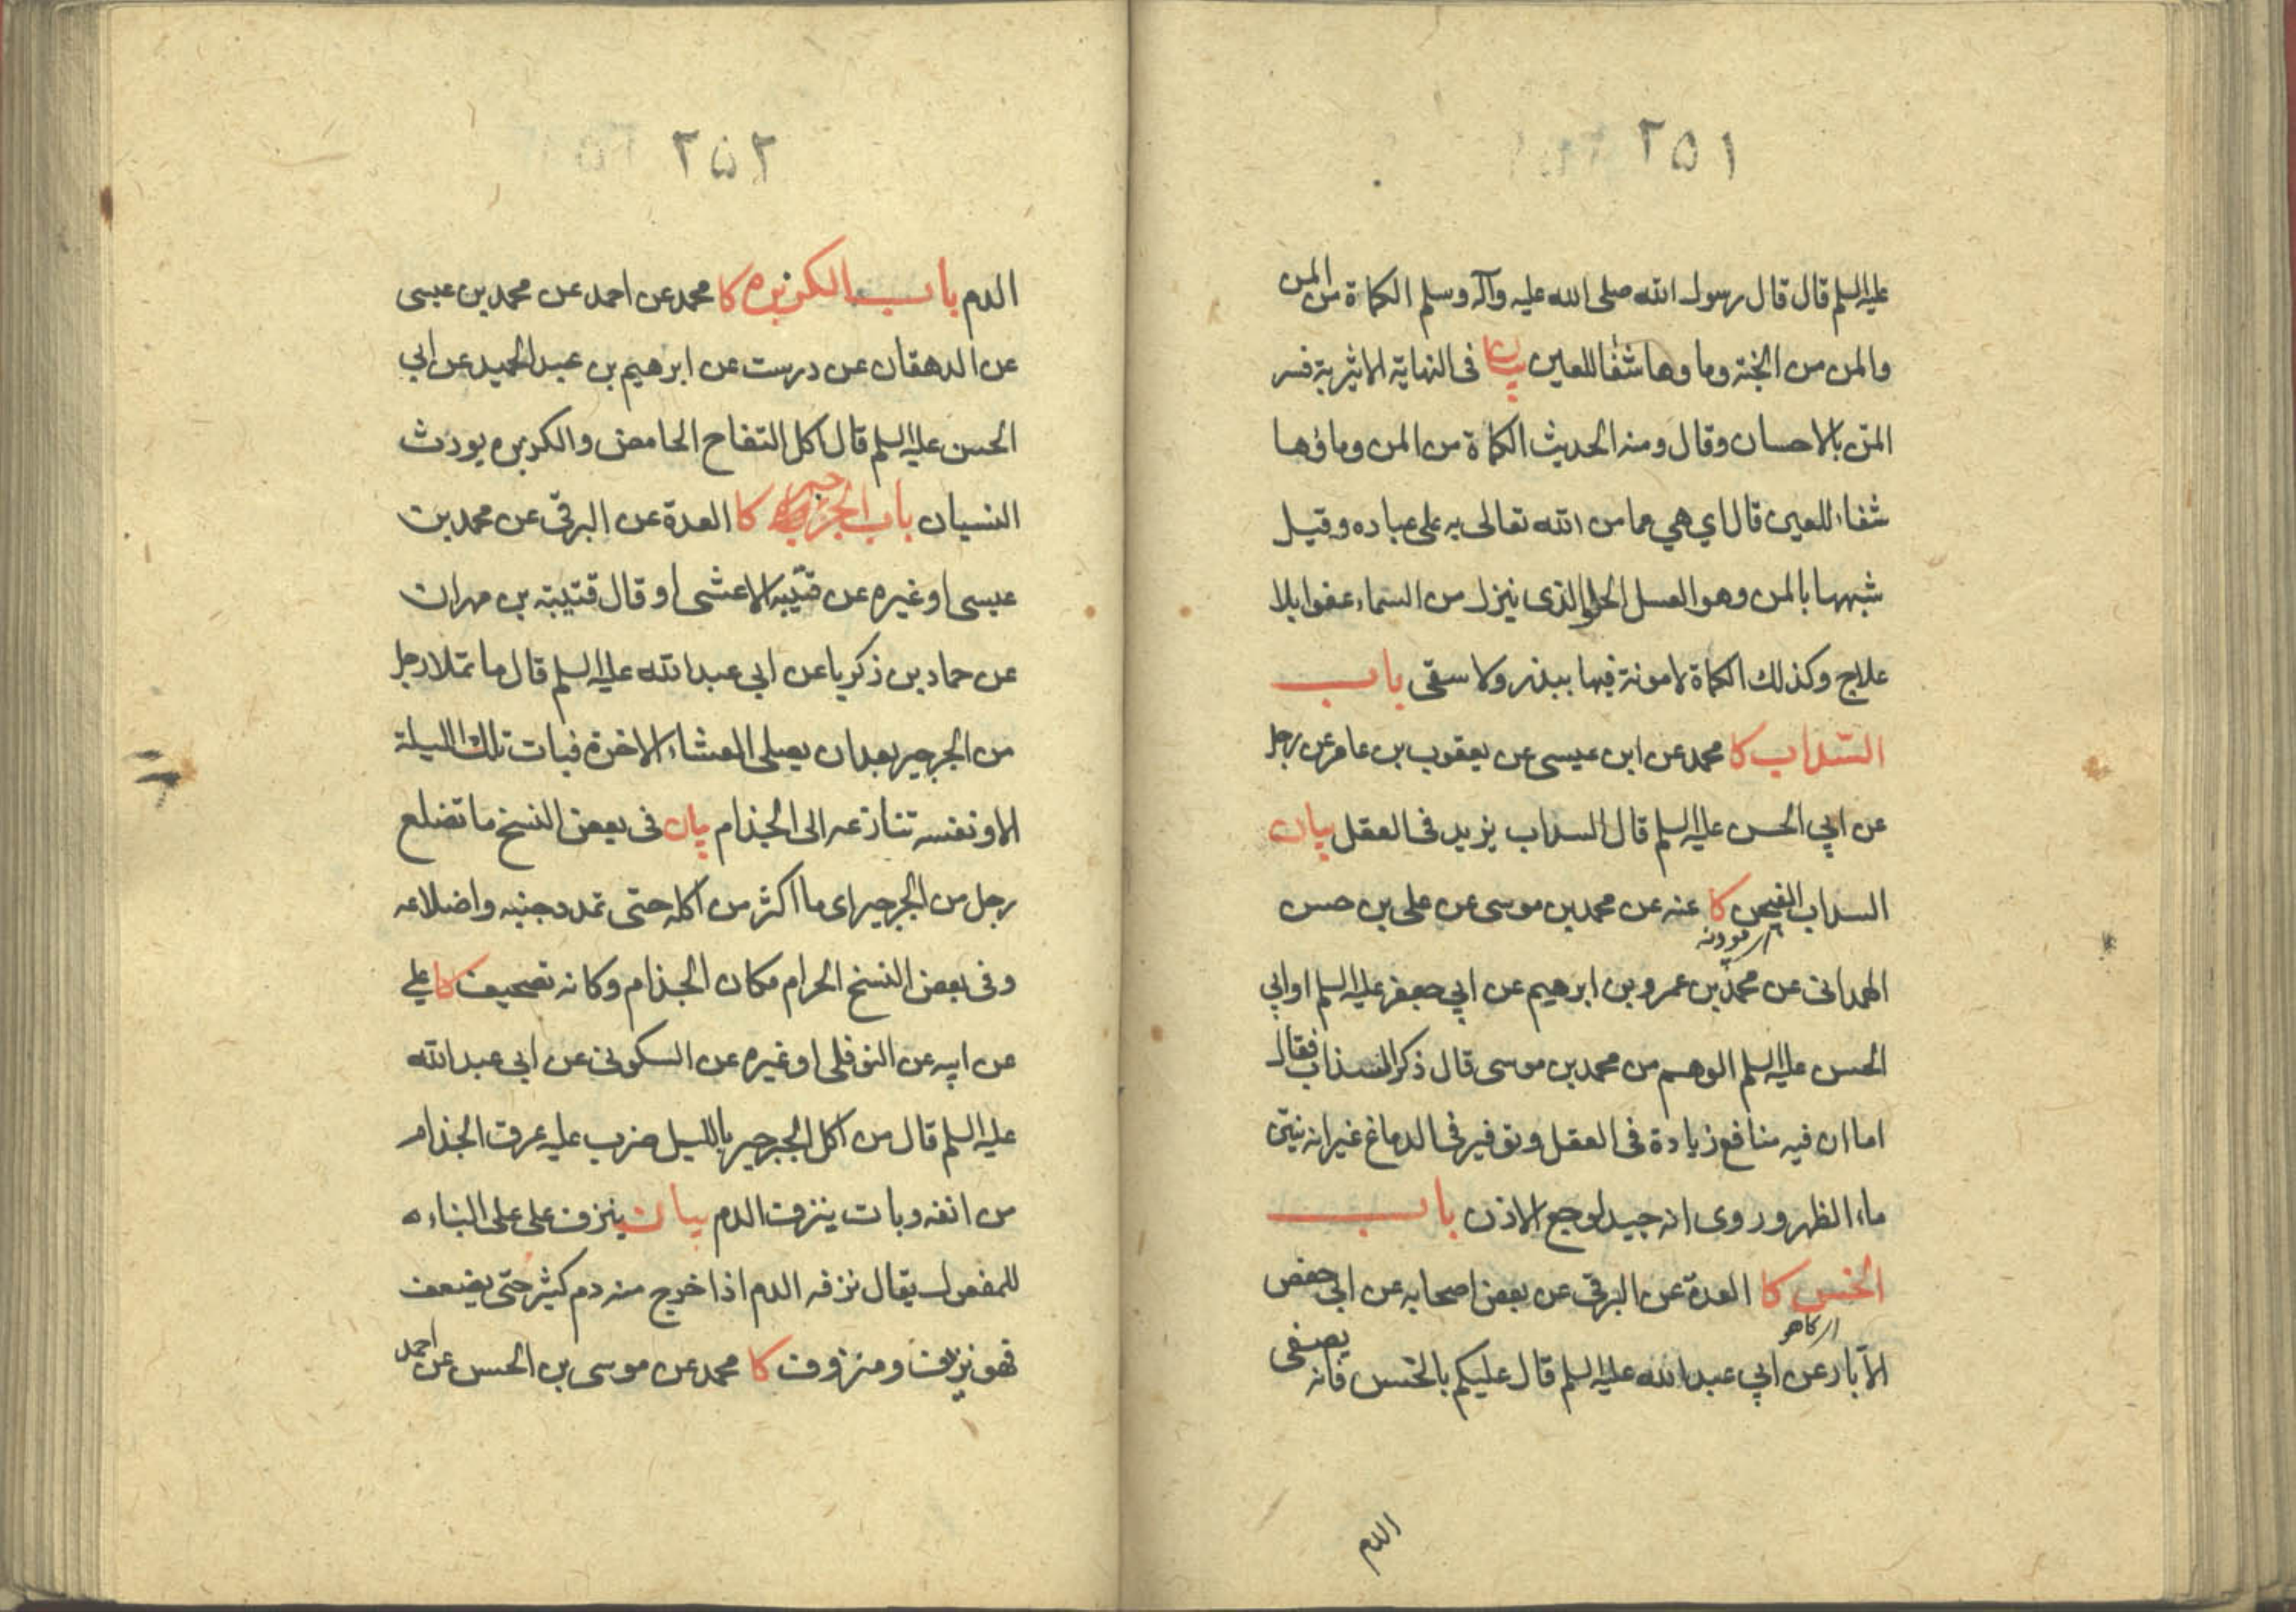 ٢٥١
عليه السلم قال قال رسول الله صلى الله عليه وآله وسلم الكماة من المن
والمن من الجنة وماوها شفا للعين بيان فى النهاية الاثيرية فسر
المنّ بالاحسان وقال ومنه الحديث الكماة من المن وماؤها
شفاء للعين قال اي هي مما من الله تعالى به على عباده وقيل
شبهها بالمن وهو العسل الحلو الذى ينزل من السماء عفوا بلا
علاج وكذلك الكماة لا مونة فيها ببذر ولا سقى باب
السّداب كا محمد عن ابن عيسى عن يعقوب بن عامر عن رجل
عن ابي الحسن عليه السلم قال السداب يزيد فى العقل بيان
السداب الفيجن كا عنه عن محمد بن موسى عن على بن حسن
الهمدانى عن محمد بن عمرو بن ابرهيم عن ابي جعفر عليه السلم او ابي
الحسن عليه السلم الوهم من محمد بن موسى قال ذكر السذاب فقال
اما ان فيه منافع زيادة فى العقل وتوفير فى الدماغ غير انه ينتن
ماء الظهر وروى انه جيد لوجع الاذن باب
الخس كا العدة عن البرقى عن بعض اصحابه عن ابي حفص
اى كاهو
الأبار عن ابي عبد الله عليه السلم قال عليكم بالخس فانه يصفى
الدم
٢٥٢
الدم باب الكزبره كا محمد عن احمد عن محمد بن عيسى
عن الدهقان عن درست عن ابرهيم بن عبد الحميد عن ابي
الحسن عليه السلم قال اكل التفاح الحامض والكزبره يورث
النسيان باب الجرجير كا العدة عن البرقى عن محمد بن
عيسى او غيره عن قتيبة الاعشى او قال قتيبة بن مهران
عن حماد بن زكريا عن ابي عبد الله عليه السلم قال ما تملا رجل
من الجرجير بعد ان يصلى العشاء الاخرة فبات تلك الليلة
الا ونفسه تنازعه الى الجذام بيان فى بعض النسخ ما تضلع
رجل من الجرجير اى ما اكثر من اكله حتى تمدد جنبه واضلاعه
وفى بعض النسخ الحرام مكان الجذام وكانه تصحيف كا على
عن ابيه عن النوفلى او غيره عن السكونى عن ابي عبد الله
عليه السلم قال من اكل الجرجير بالليل ضرب عليه عرق الجذام
من انفه وبات ينزف الدم بيان ينزف على على البناء
للمفعول يقال نزفه الدم اذا خرج منه دم كثير حتى يضعف
فهو نزيف ومنزوف كا محمد عن موسى بن الحسن عن احمد